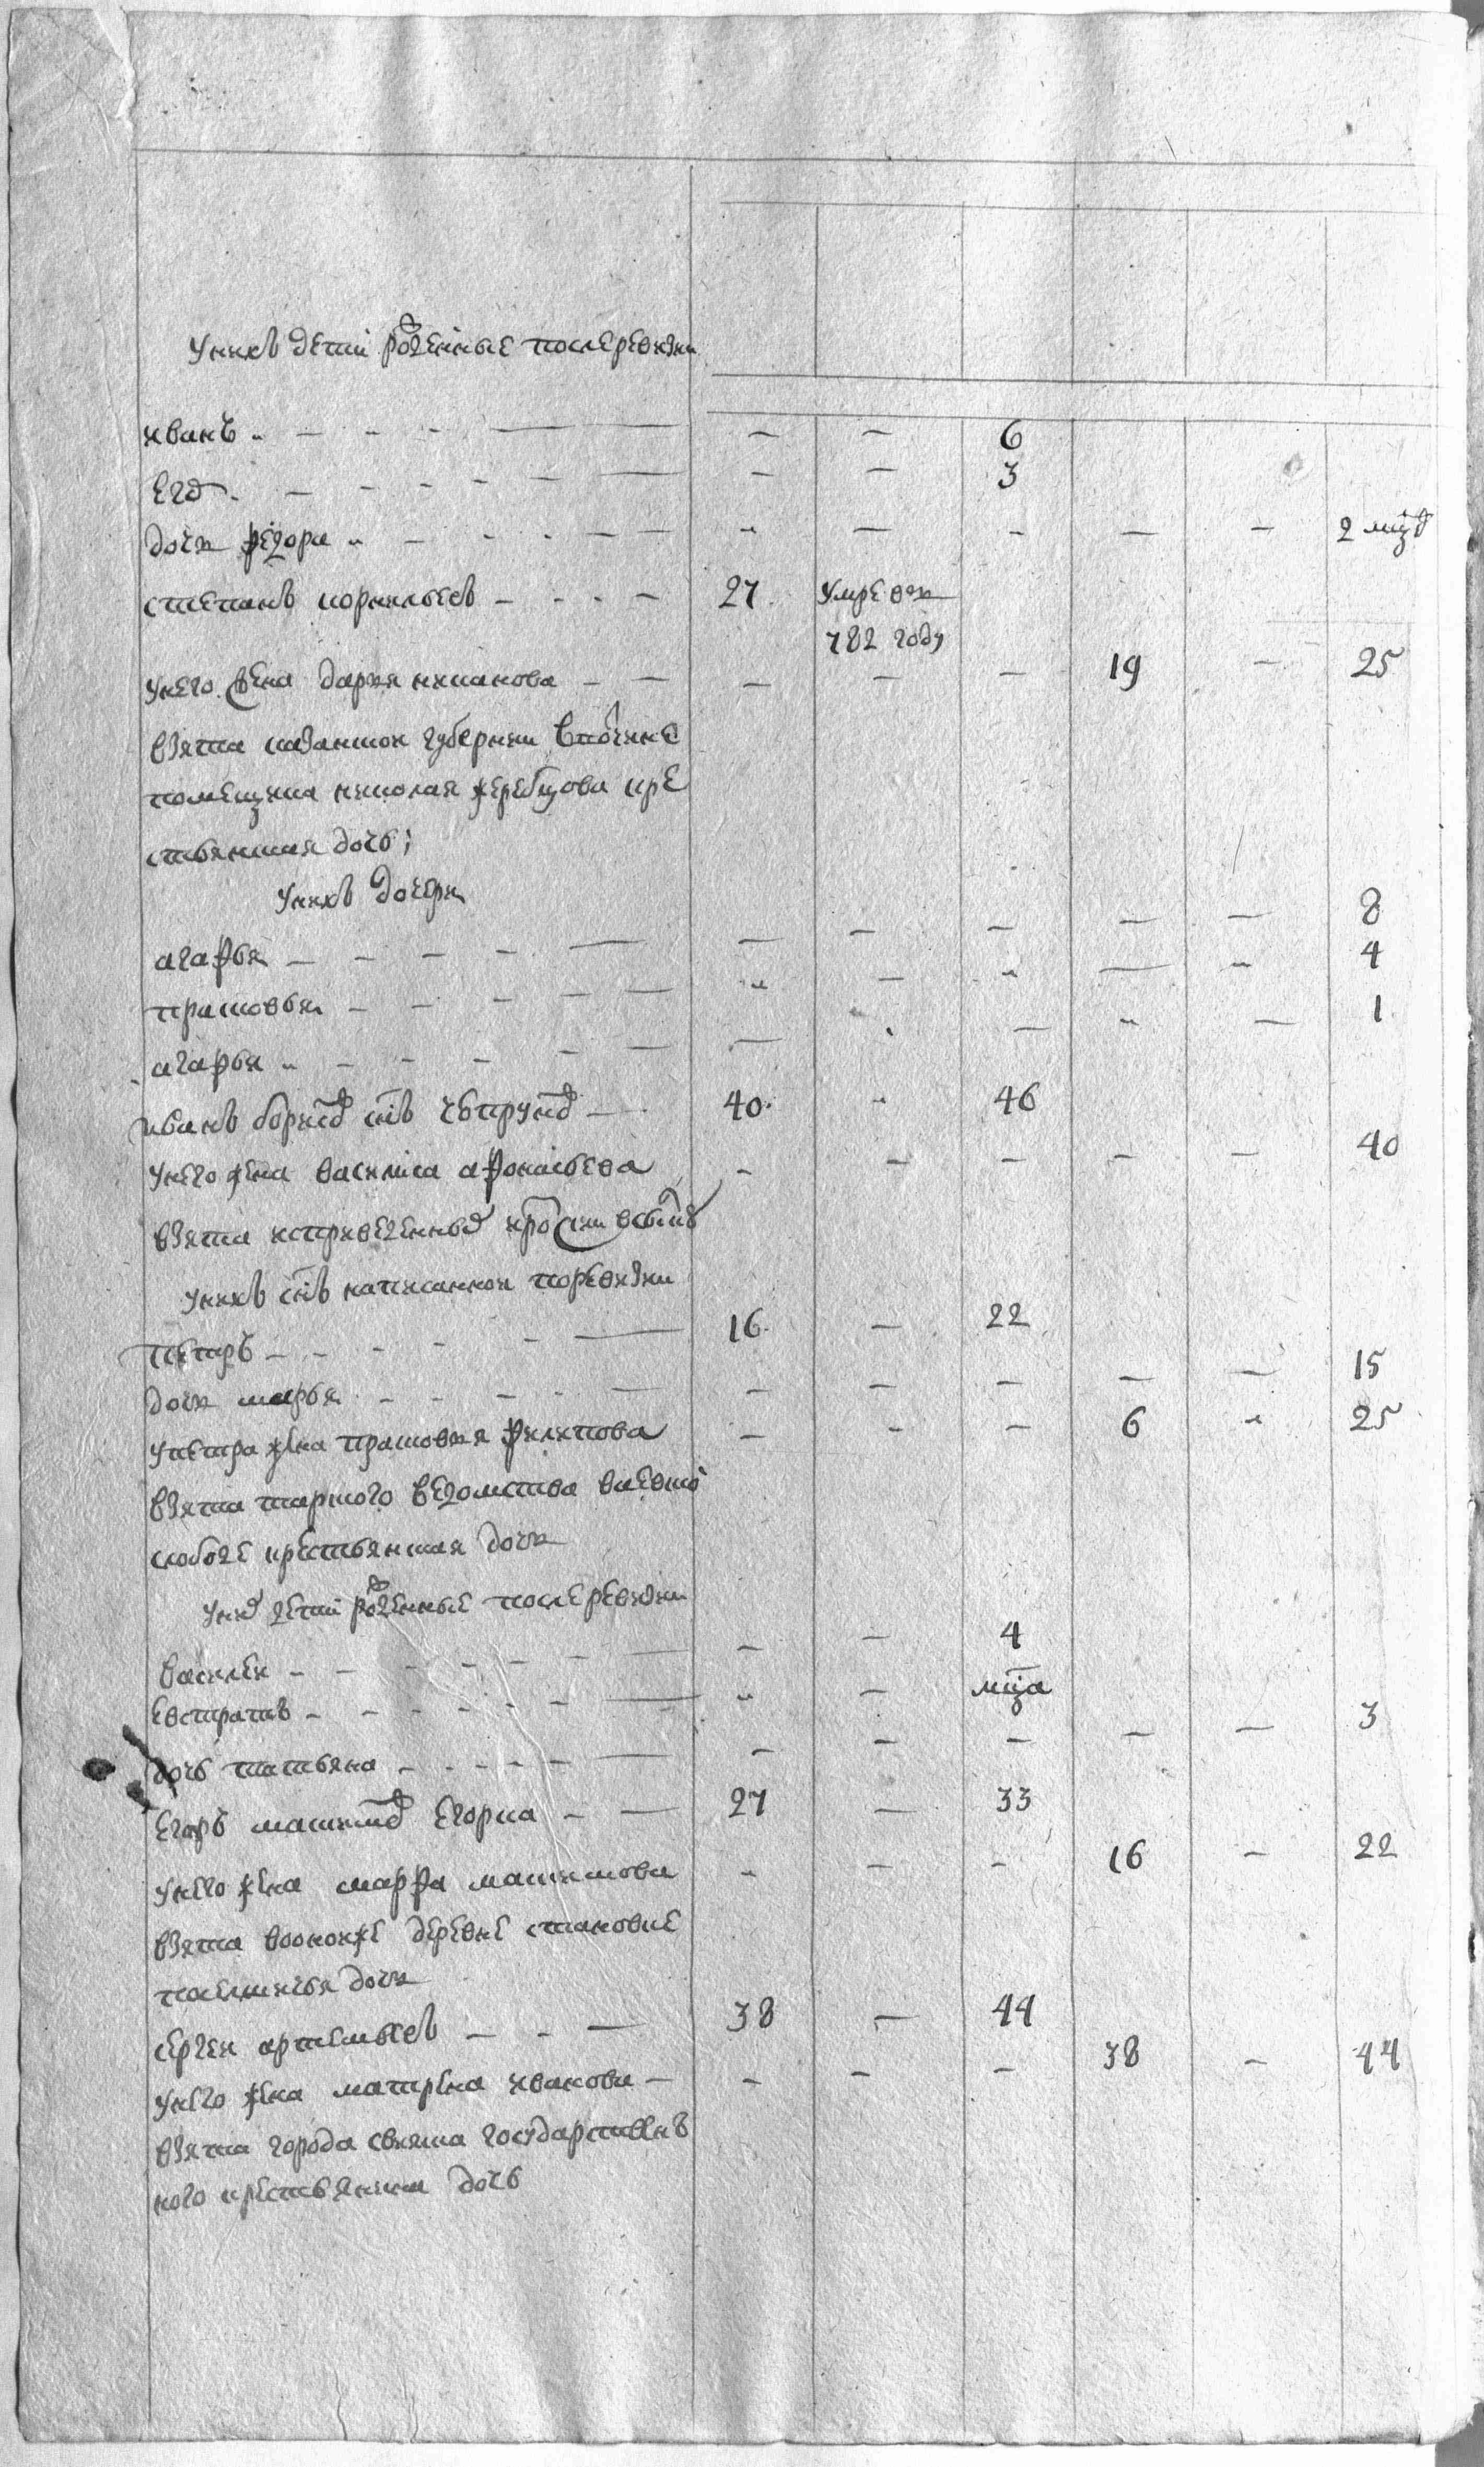 унихъ дети рожденные послеревизи
иванъ - - 6
егоръ - - 3
дочи федора - - - - - 2 мцъ
степанъ корнильевъ 27 умре въ
782 году
унего жена дарья иванова - - - 19 - 25
взята казанской губернии вотчине
помещика николая жеребцова кре
стьянская дочь;
унихъ дочери
агафья - - - - - 8
прасковья - - - - - 4
агафья - - - - 1
иванъ борисовъ снъ 40 - 46
унего жена василиса афонасьева - - - - - 40
взята
унихъ снъ написанной поревизи
петръ 16 - 22
дочи марья - - - - - 15
упетра жена прасковья филипова - - - 6 - 25
взята ведомства
слободе крестьянская дочи
унихъ дети рожденные послеревизи
василей - - 4
евстратъ - - мца
дочь татьяна - - - - - 3
егоръ 27 - 33
унего жена марфа максимова - - - 16 - 22
взята деревне становке
дочи
сергей артемьевъ 38 - 44
унего жена матрена иванова - - - 38 - 44
взята города государствен
ного крестьянина дочь